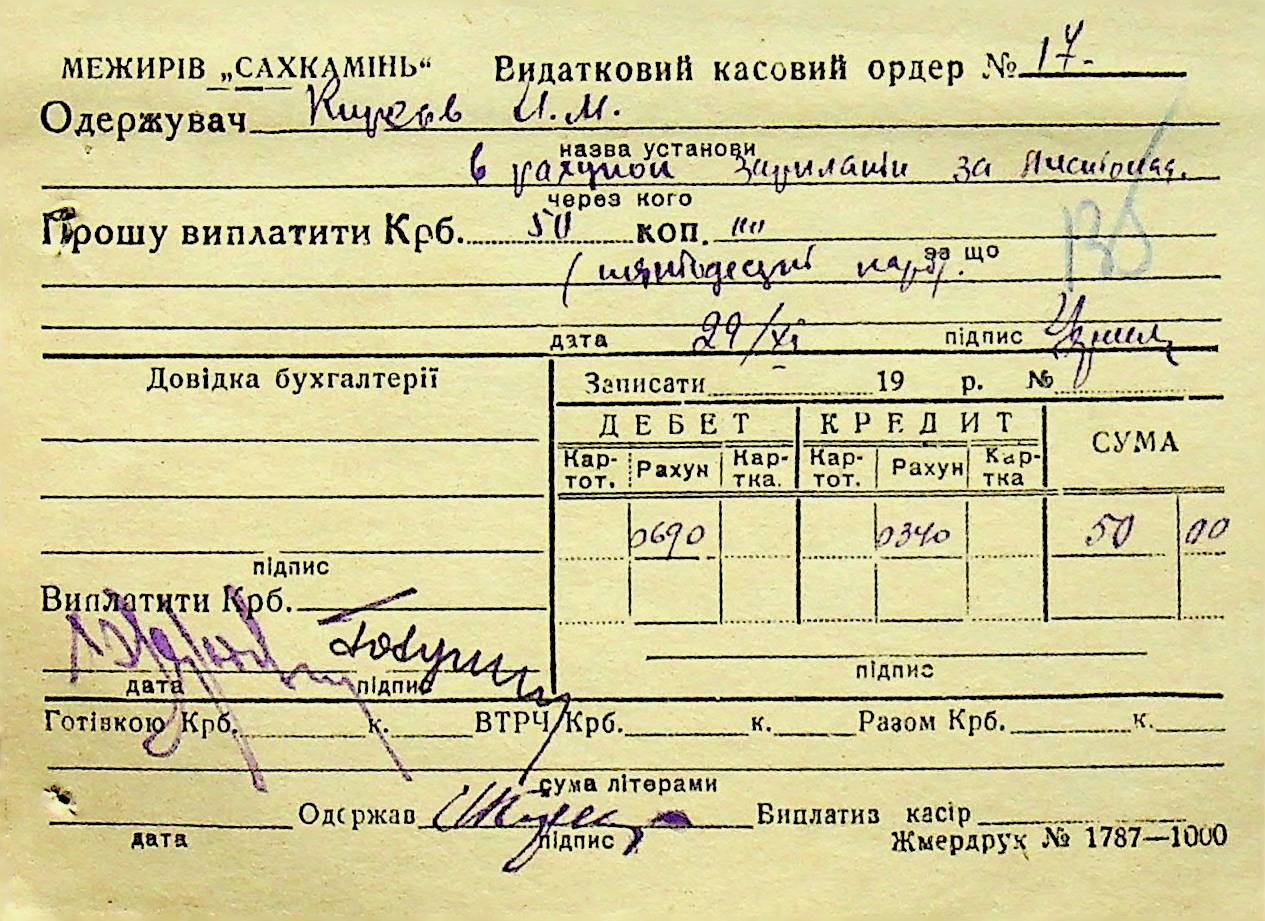 МЕЖИРІВ „САХКАМІНЬ“ Видатковий касовий ордер № 17.
Одержувач И. М.
назва установи
в рахунок зарплати за
через кого
Прошу виплатити Крб. 50 коп. "" 
за що
(пятьдесят карб.
дата 29/XI підпис
Довідка бухгалтерії
Записати 19 р. №
ДЕБЕТ КРЕДИТ СУМА
Кар-тот. Рахун Кар-тка. Кар-тот. Рахун Кар-тка
0690 0340 50 00
підпис
Виплатити Крб.
підпис
дата підпис
Готівкою Крб. к. ВТРЧ Крб. к. Разом Крб. к.
сума літерами
Одержав Виплатив касір
дата підпис Жмердрук № 1787—1000